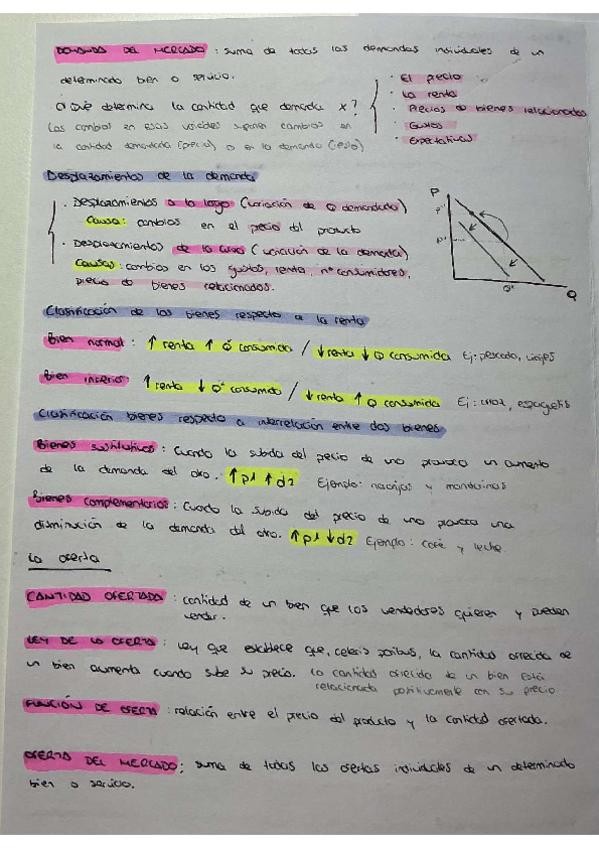 DEMANDA DEL MERCADO: suma de todas las demandas individuales de un
determinado bien o servicio.
¿Qué determina la cantidad que demanda x?
Los cambios en estas variables suponen cambios en
la cantidad demandada (precio) o en la demanda (resto)
· El precio
· La renta
· Precios de bienes relacionados
· Gustos
· Expectativas
Desplazamientos de la demanda
· Desplazamientos a lo largo (variación de Q demandada)
Causa: cambios en el precio del producto
· Desplazamientos de la curva (variación de la demanda)
Causas: cambios en los gustos, renta, nº consumidores,
precio de bienes relacionados.
P
P''
P'
Q'
Q
Clasificación de los bienes respecto a la renta
Bien normal: ↑ renta ↑ Q consumida / ↓ renta ↓ Q consumida Ej: pescado, viajes
Bien inferior ↑ renta ↓ Q consumida / ↓ renta ↑ Q consumida Ej: arroz, espaguetis
Clasificación bienes respecto a interrelación entre dos bienes
Bienes sustitutivos: Cuando la subida del precio de uno provoca un aumento
de la demanda del otro. ↑p1 ↑d2 Ejemplo: naranjas y mandarinas
Bienes complementarios: Cuando la subida del precio de uno provoca una
disminución de la demanda del otro. ↑p1 ↓d2 Ejemplo: café y leche
La oferta
CANTIDAD OFERTADA: cantidad de un bien que los vendedores quieren y pueden
vender.
LEY DE LA OFERTA: Ley que establece que, ceteris paribus, la cantidad ofrecida de
un bien aumenta cuando sube su precio. La cantidad ofrecida de un bien está
relacionada positivamente con su precio
FUNCIÓN DE OFERTA: relación entre el precio del producto y la cantidad ofertada.
OFERTA DEL MERCADO: suma de todas las ofertas individuales de un determinado
bien o servicio.